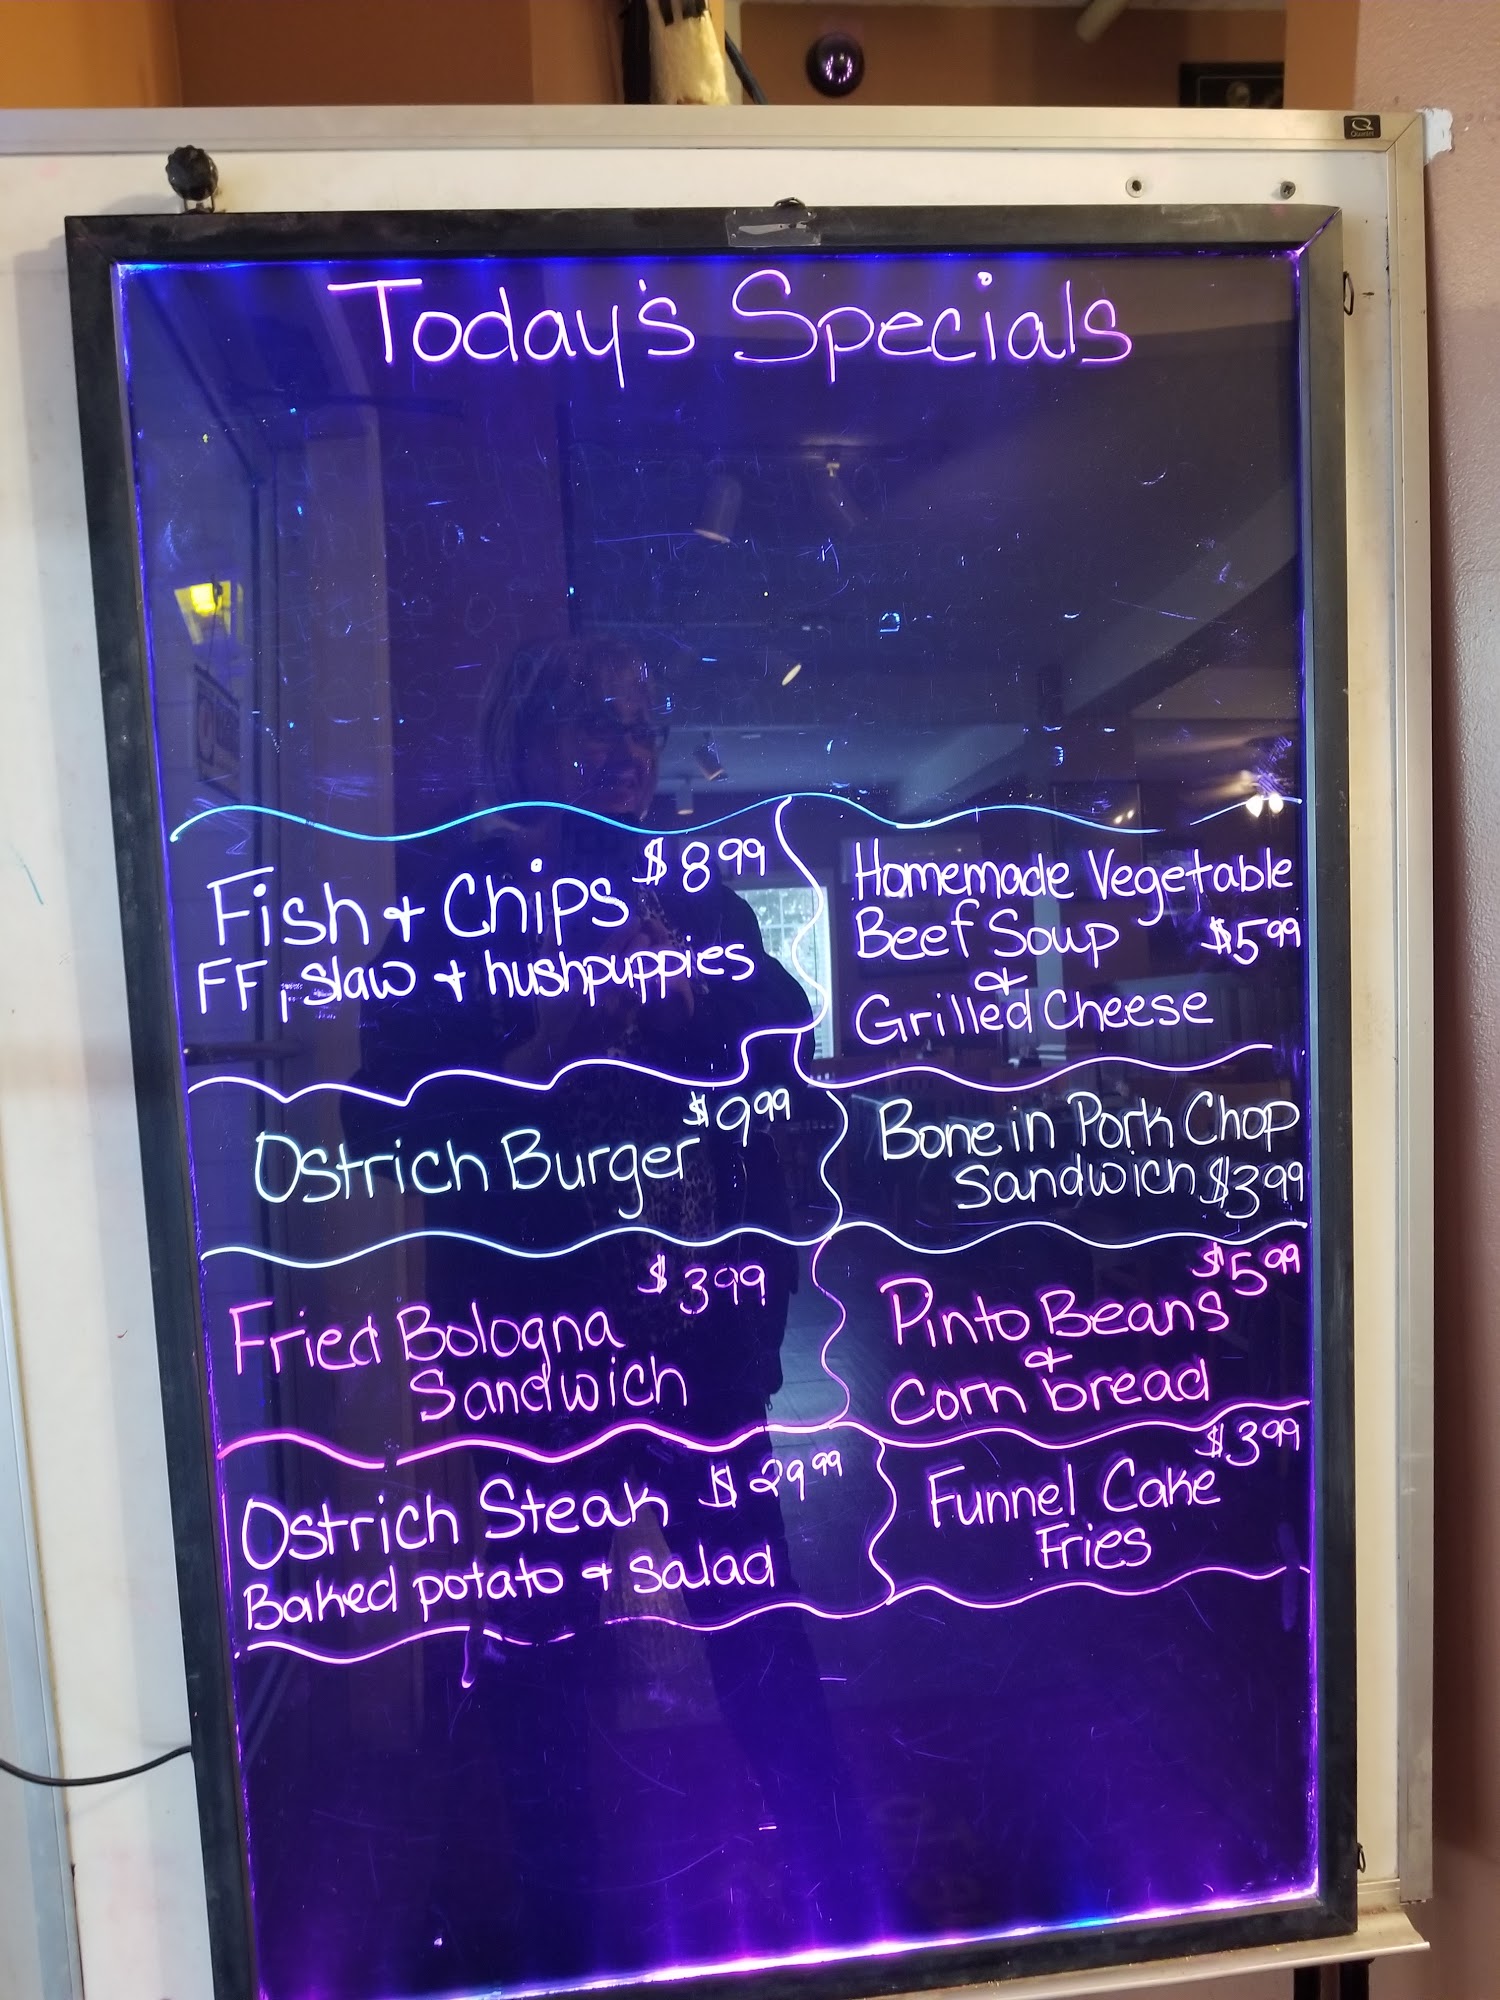 Today's Specials
Fish & Chips $8.99
FF, slaw & hushpuppies
Homemade Vegetable
Beef Soup $5.99
&
Grilled Cheese
Ostrich Burger $9.99
Bone in Pork Chop
Sandwich $3.99
$3.99
Fried Bologna
Sandwich
$5.99
Pinto Beans
&
Corn bread
Ostrich Steak $29.99
Baked potato & salad
$3.99
Funnel Cake
Fries
Quartet